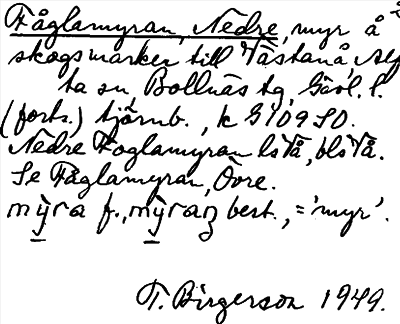 Fåglamyran, Nedre, myr å
skogsmarken till Västanå, Alf
ta sn, Bollnäs tg, Gävl. l.
(forts.) tjärnb., k G 109 SO.
Nedre Foglamyran ls Vå, bls Vå.
Se Fåglamyran, Övre.
mỳra f., mỳraɳ best., = 'myr'.
T. Birgerson 1949.